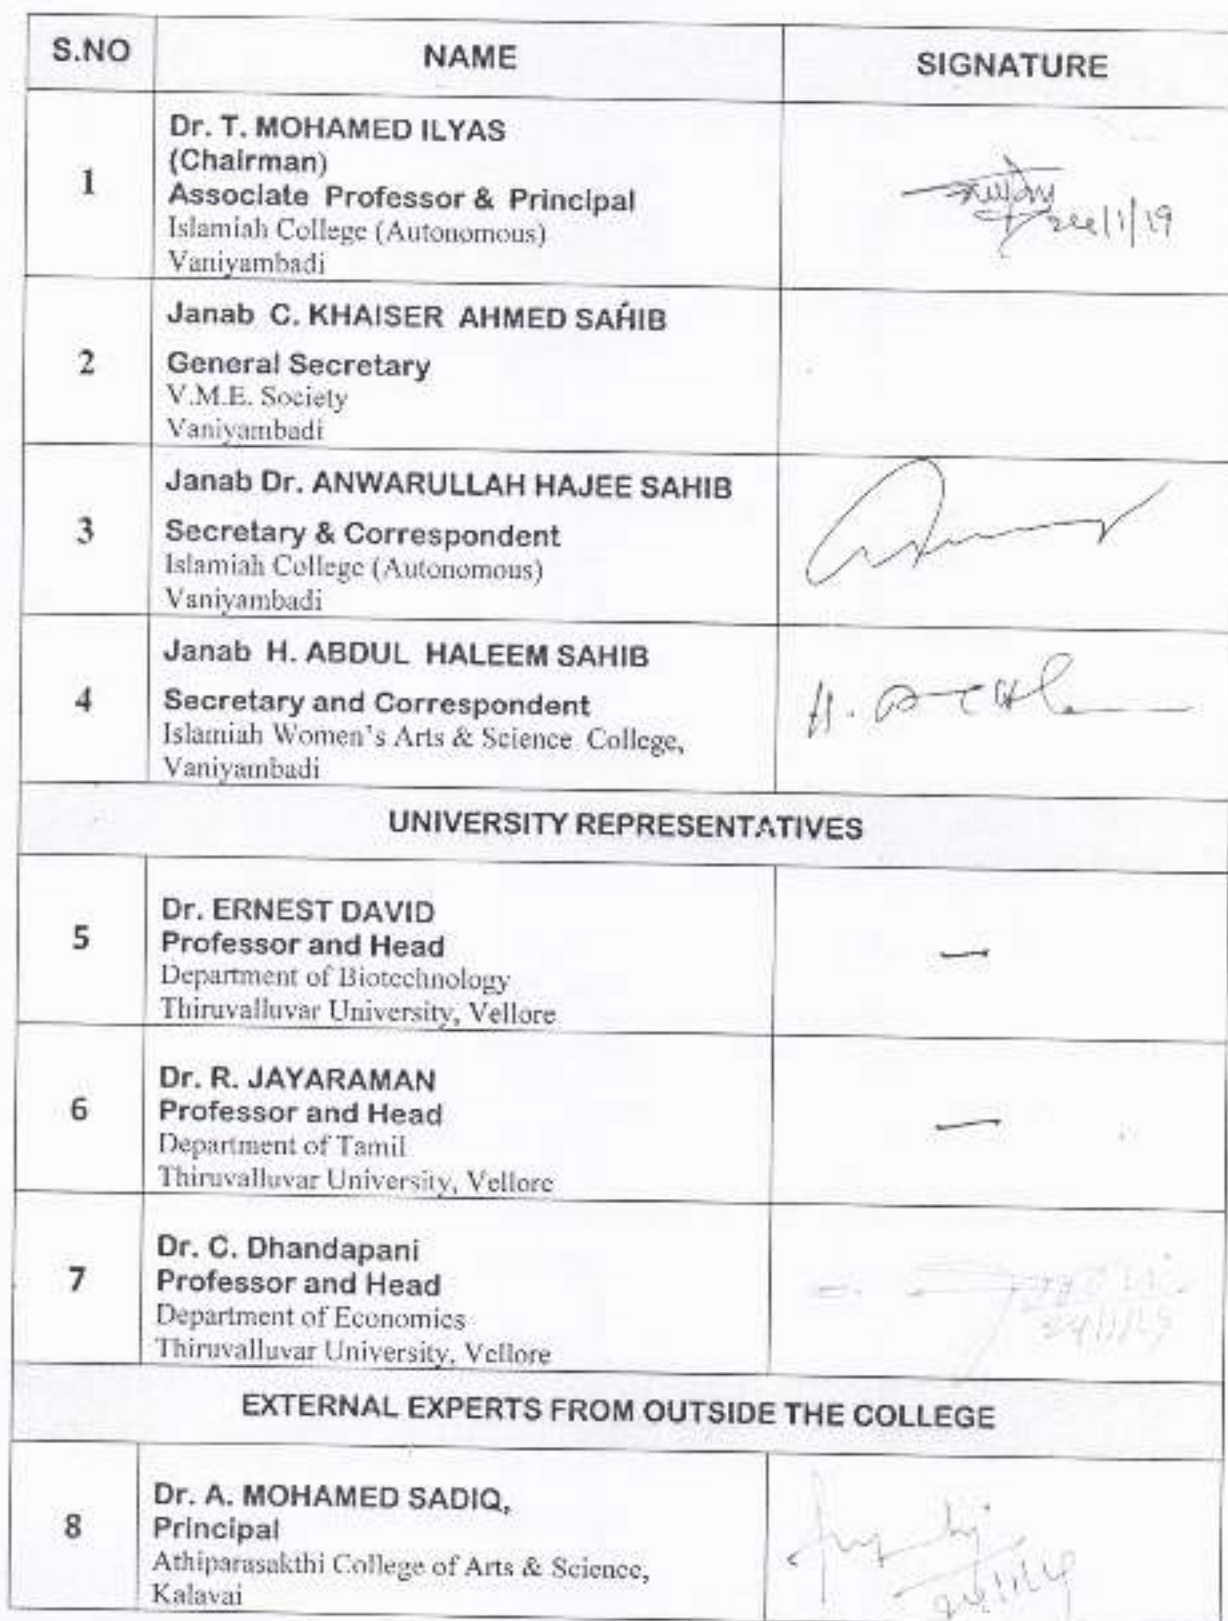 S.NO NAME SIGNATURE
1
Dr. T. MOHAMED ILYAS
(Chairman)
Associate Professor & Principal
Islamiah College (Autonomous)
Vaniyambadi
2
Janab C. KHAISER AHMED SAHIB
General Secretary
V.M.E. Society
Vaniyambadi
3
Janab Dr. ANWARULLAH HAJEE SAHIB
Secretary & Correspondent
Islamiah College (Autonomous)
Vaniyambadi
4
Janab H. ABDUL HALEEM SAHIB
Secretary and Correspondent
Islamiah Women's Arts & Science College,
Vaniyambadi
UNIVERSITY REPRESENTATIVES
5
Dr. ERNEST DAVID
Professor and Head
Department of Biotechnology
Thiruvalluvar University, Vellore
—
6
Dr. R. JAYARAMAN
Professor and Head
Department of Tamil
Thiruvalluvar University, Vellore
—
7
Dr. C. Dhandapani
Professor and Head
Department of Economics
Thiruvalluvar University, Vellore
24/1/19
EXTERNAL EXPERTS FROM OUTSIDE THE COLLEGE
8
Dr. A. MOHAMED SADIQ,
Principal
Athiparasakthi College of Arts & Science,
Kalavai